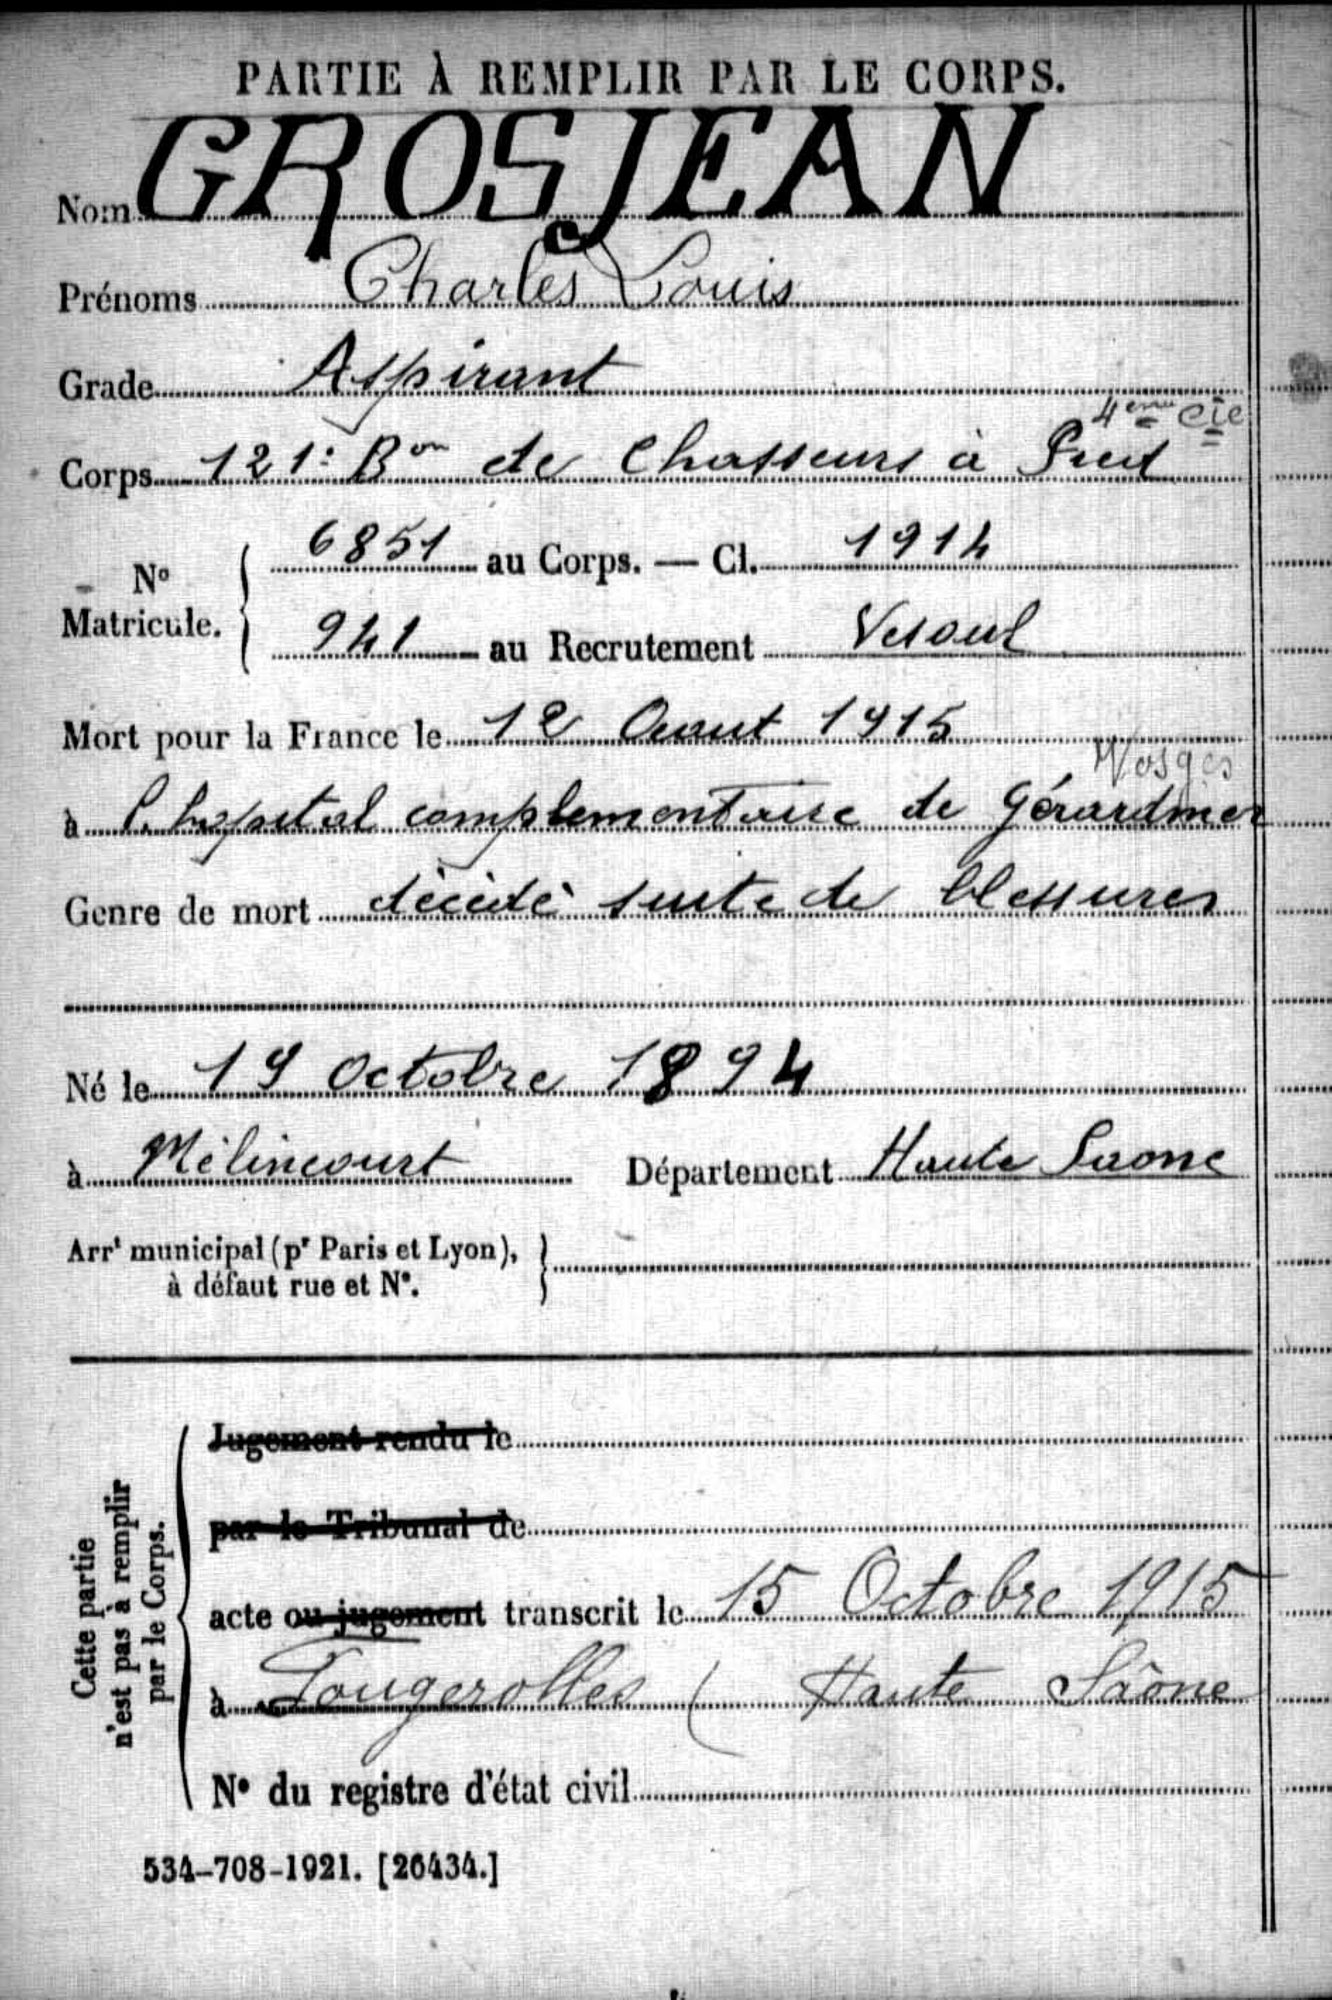 PARTIE À REMPLIR PAR LE CORPS.
Nom GROSJEAN
Prénoms Charles Louis
Grade Aspirant
4ème Cie
Corps 121e Bon de Chasseurs à Pied
No Matricule. 6851 au Corps. — Cl. 1914
941 au Recrutement Vesoul
Mort pour la France le 12 Aout 1915
Vosges
à l'hopital complementaire de Gérardmer
Genre de mort décédé suite de blessures
Né le 19 Octobre 1894
à Mélincourt Département Haute Saone
Arrt municipal (pr Paris et Lyon),
à défaut rue et N°.
Cette partie
n'est pas à remplir
par le Corps.
Jugement rendu le
par le Tribunal de
acte ou jugement transcrit le 15 Octobre 1915
à Fougerolles ( Haute Saône
N° du registre d'état civil
534-708-1921. [26434.]